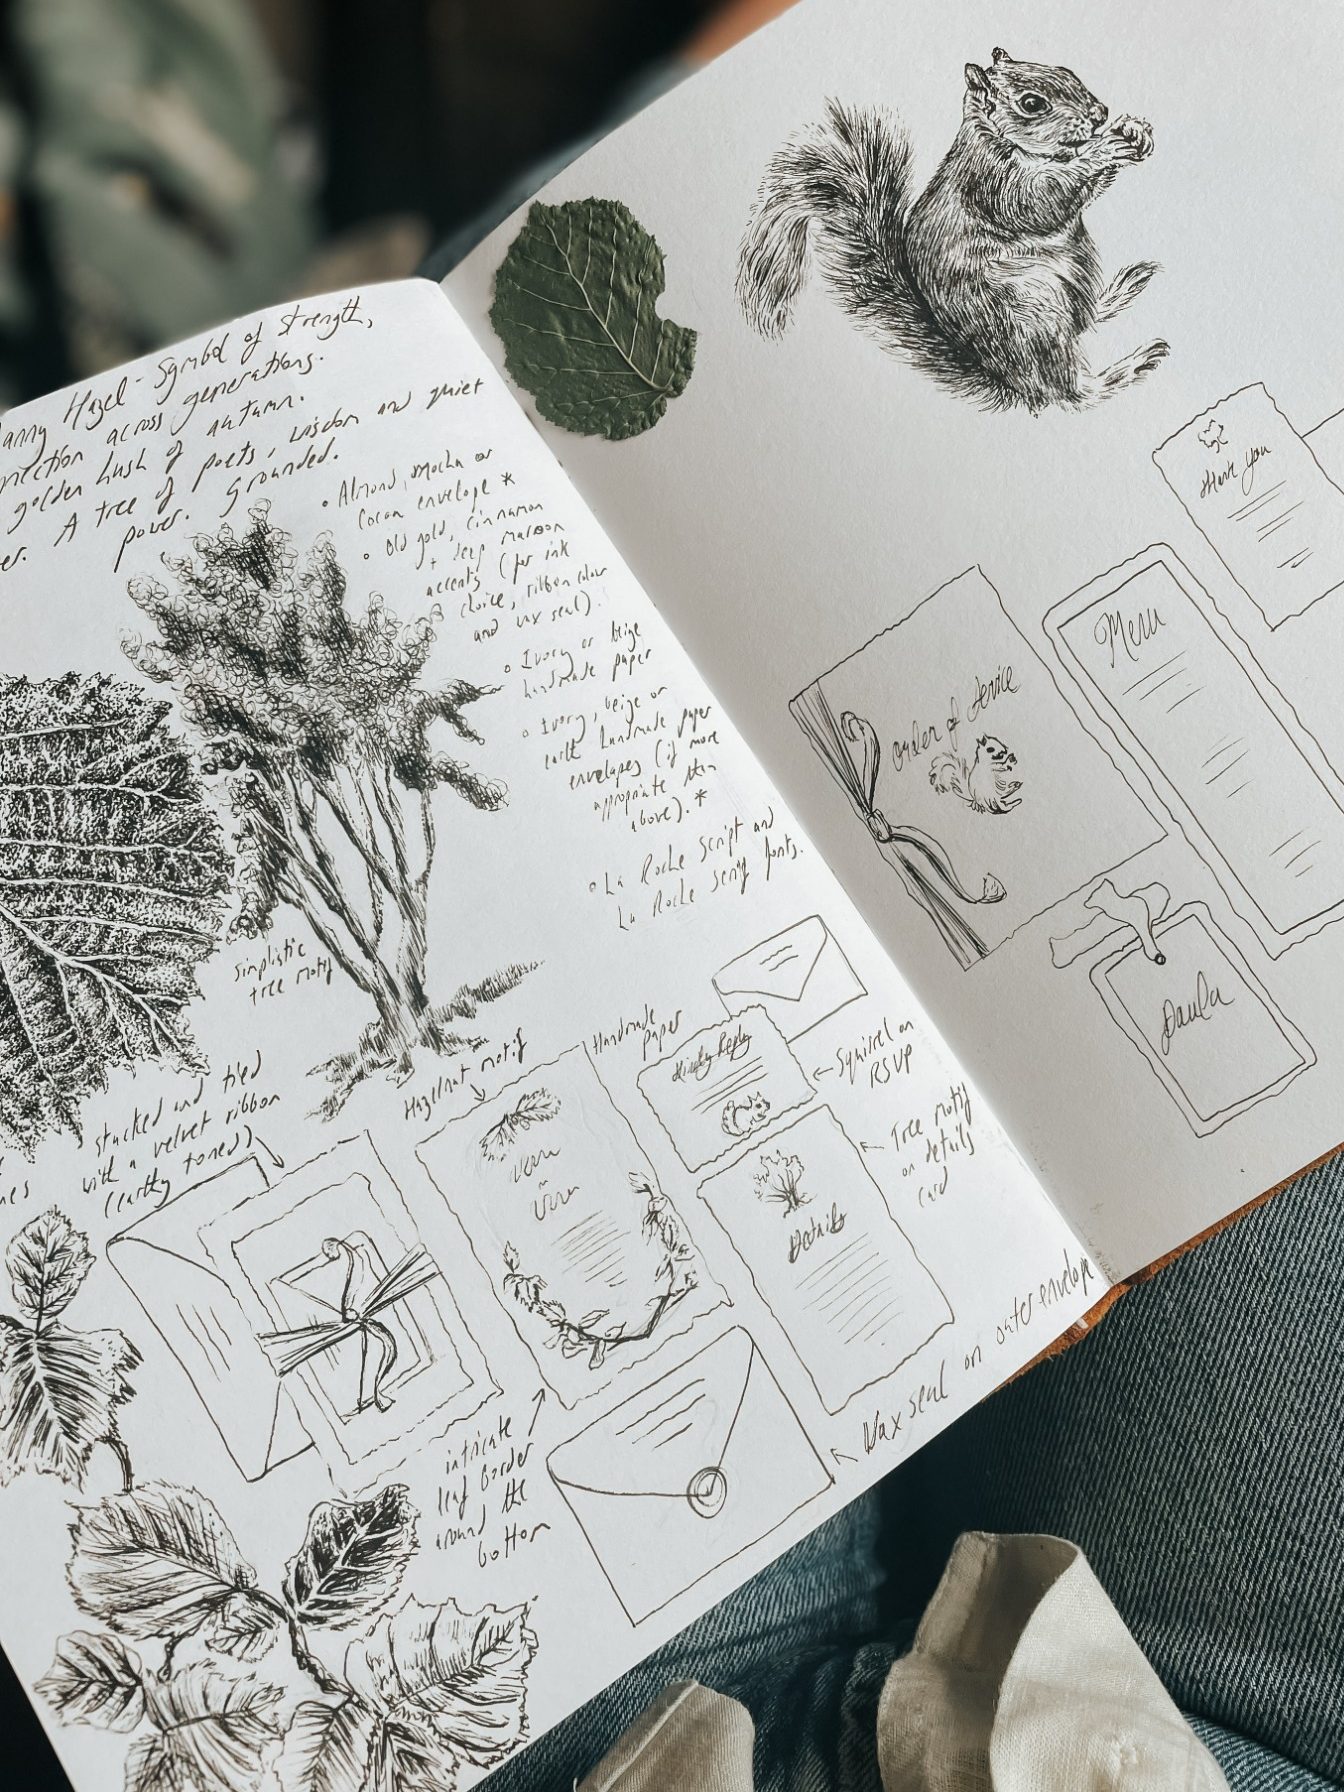 anny Hazel - Symbol of strength,
nnection across generations.
golden hush of autumn.
er. A tree of poets, wisdom and quiet
power. Grounded.
• Almond, mocha or
cocoa envelope *
• Old gold, cinnamon
+ deep maroon
accents (for ink
choice, ribbon colour
and wax seal).
• Ivory or beige
handmade paper
• Ivory, beige or
earth handmade paper
envelopes (if more
appropriate than
above). *
• La Roche Script and
La Roche Serif fonts.
Simplistic
tree motif
stacked and tied
with a velvet ribbon
(earthy toned)
nes
Hazelnut motif
Handmade
paper
Kindly Reply
Squirrel on
RSVP
Tree motif
on details
card
Details
intricate
leaf border
around the
bottom
Wax seal on outer envelope
Thank you
Menu
order of service
Paula